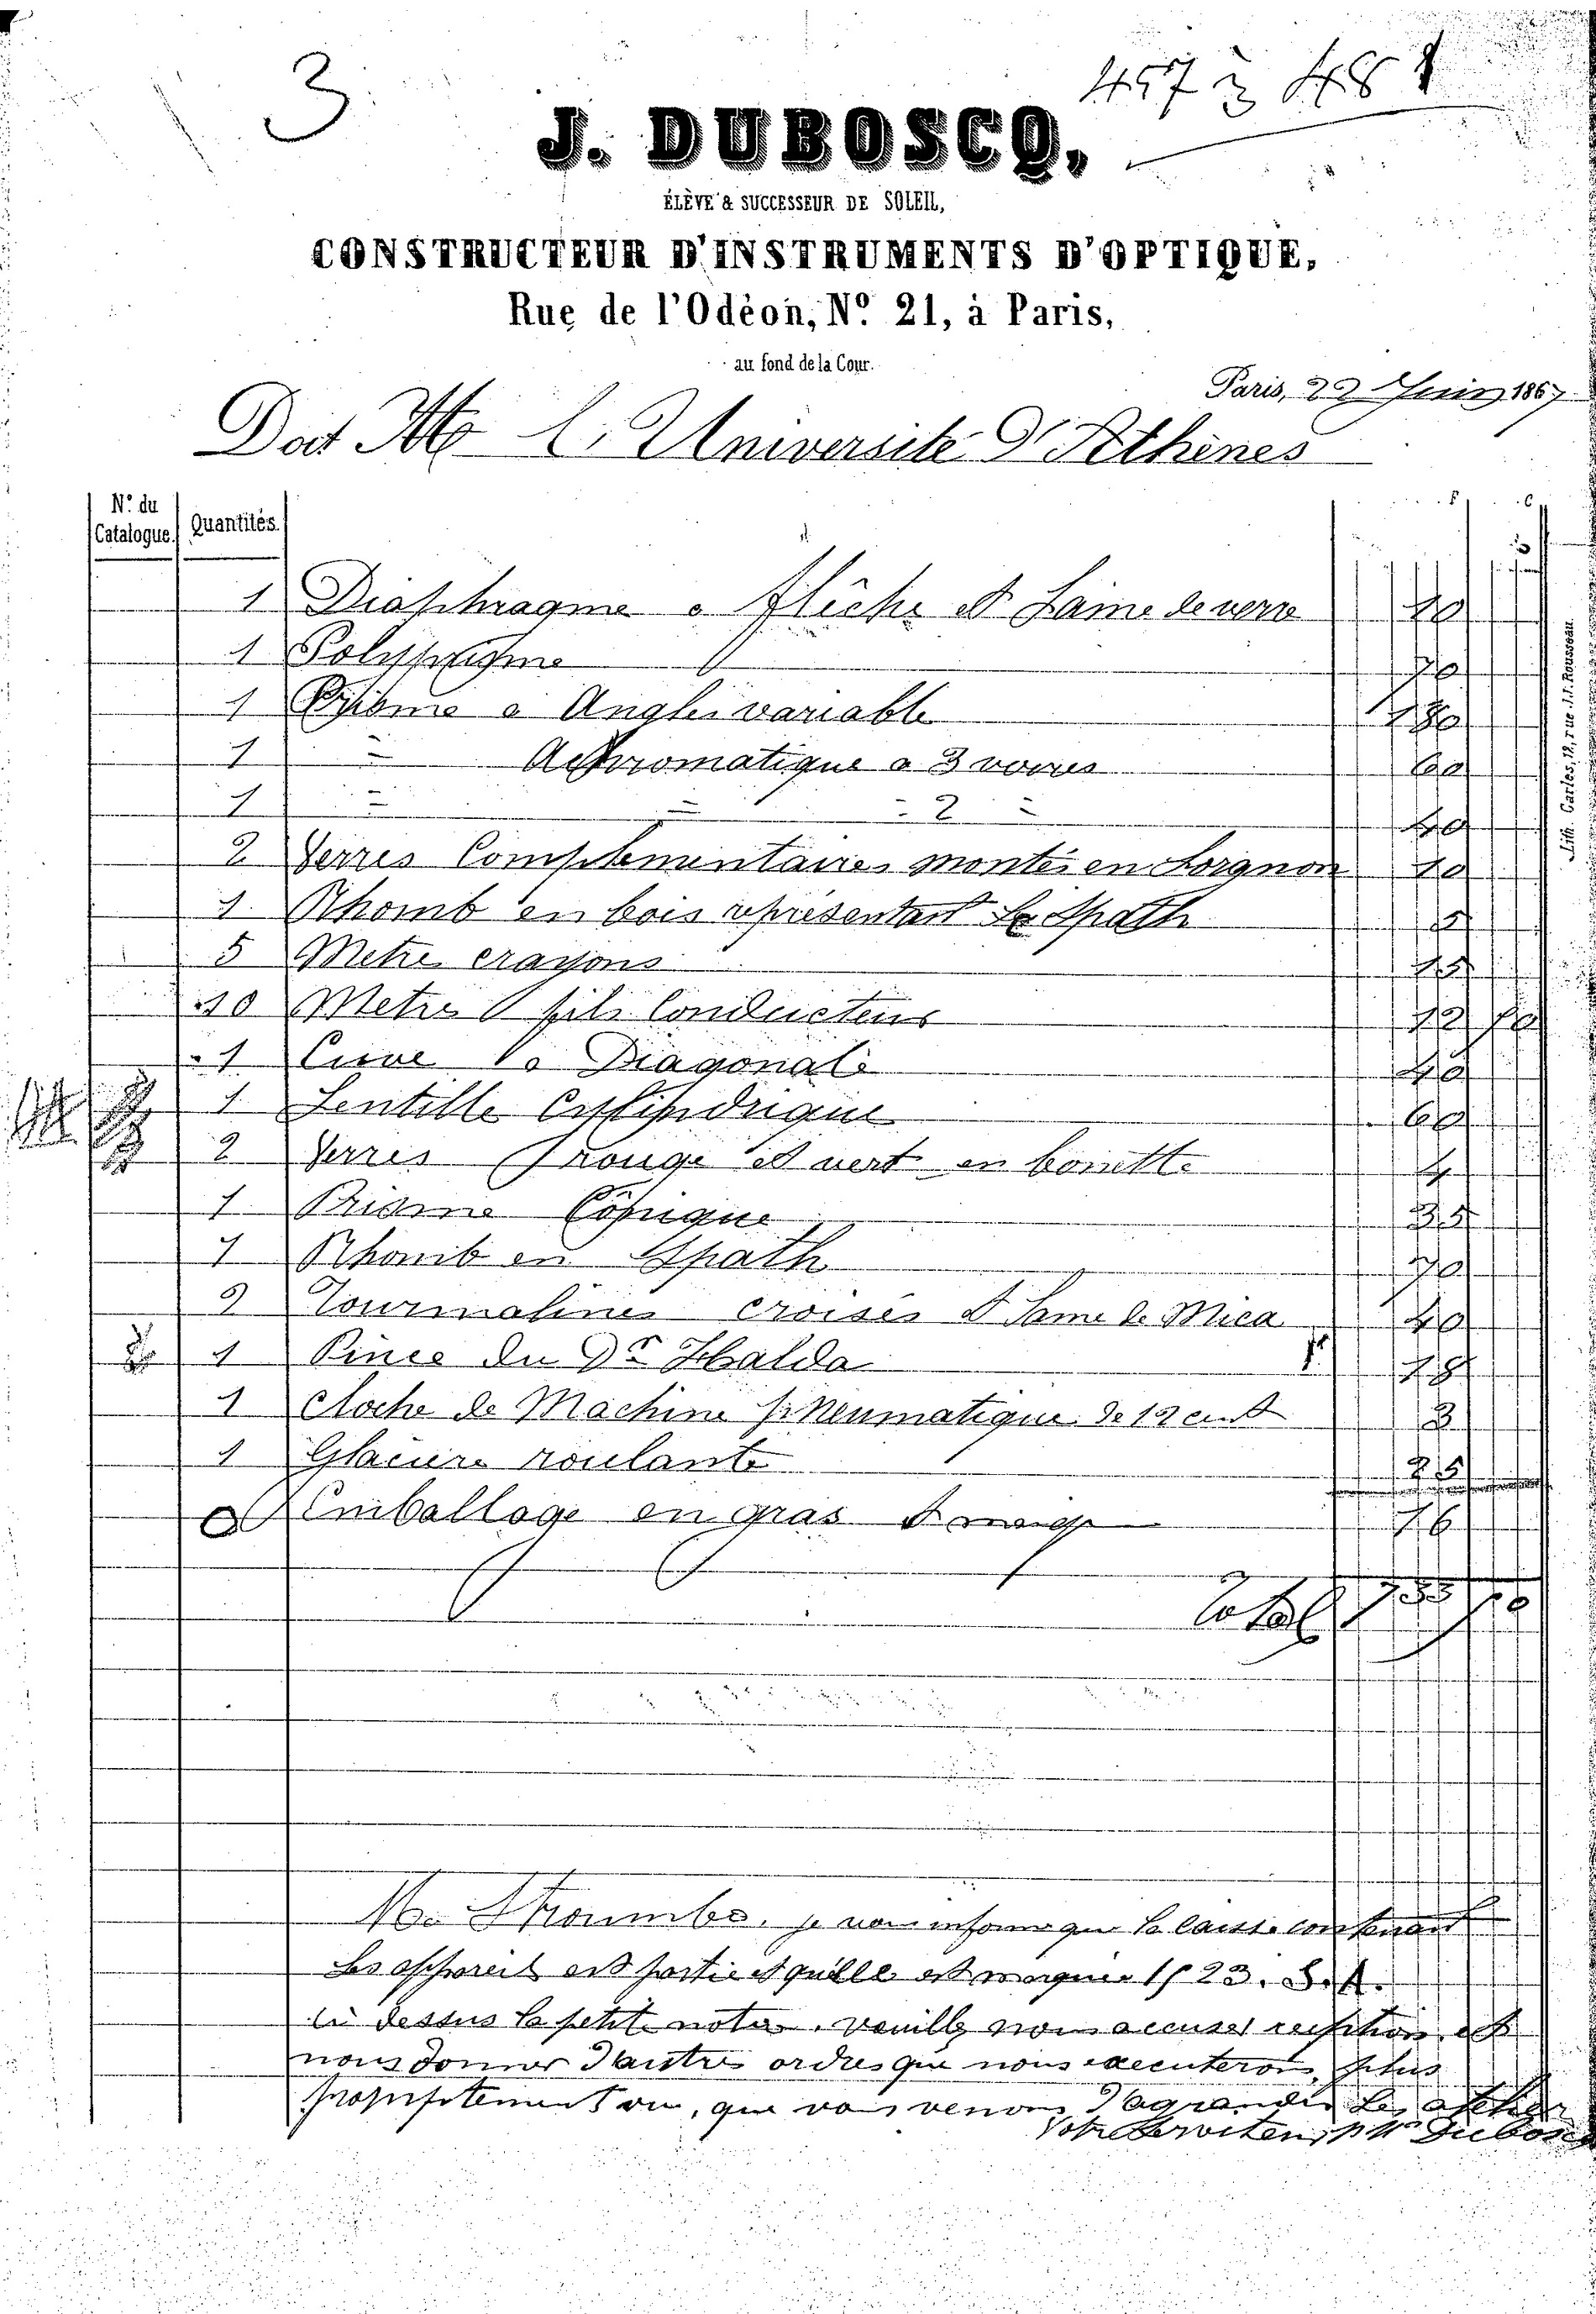 3
457 à 48
J. DUBOSCQ,
ÉLÈVE & SUCCESSEUR DE SOLEIL,
CONSTRUCTEUR D'INSTRUMENTS D'OPTIQUE,
Rue de l'Odéon, Nº 21, à Paris,
au fond de la Cour.
Paris, 22 Juin 1867
Doit M L'Université d'Athènes
Nº du Catalogue. Quantités. F C
1 Diaphragme a flêche et Lame de verre 20
1 Polyprisme 70
1 Prisme a Angle variable 180
1 = Achromatique a 3 verres 60
1 = = = 2 = 40
2 Verres Complementaires montés en Lorgnon 10
1 Rhomb en bois représentant le Spath
5 Metre crayons 15
10 Metre fils Conducteurs 12
1 Cuve a Diagonale 40
1 Lentille Cylindrique 60
2 Verres rouge et vert en bonette 4
1 Prisme Conique 35
1 Rhomb en Spath 70
2 Tourmalines croisées et Lame de Mica 40
1 Pince du Dr Halda 18
1 Cloche de Machine pneumatique de 12 cent 3
1 Glaciere roulante 25
Emballage en gras et maigre 16
Total
Lith. Carles, 12, rue J.J. Rousseau.
Mr Stroumbo, je vous informe que la caisse contenant
les appareils est partie et quelle est marquée 1/23.
Ci dessus la petite note. veuillez nous accuser reception et
nous donner d'autres ordres que nous executerons plus
promptement vu, que nous venons d'agrandir les atelier
Votre Serviteur, Dubosc